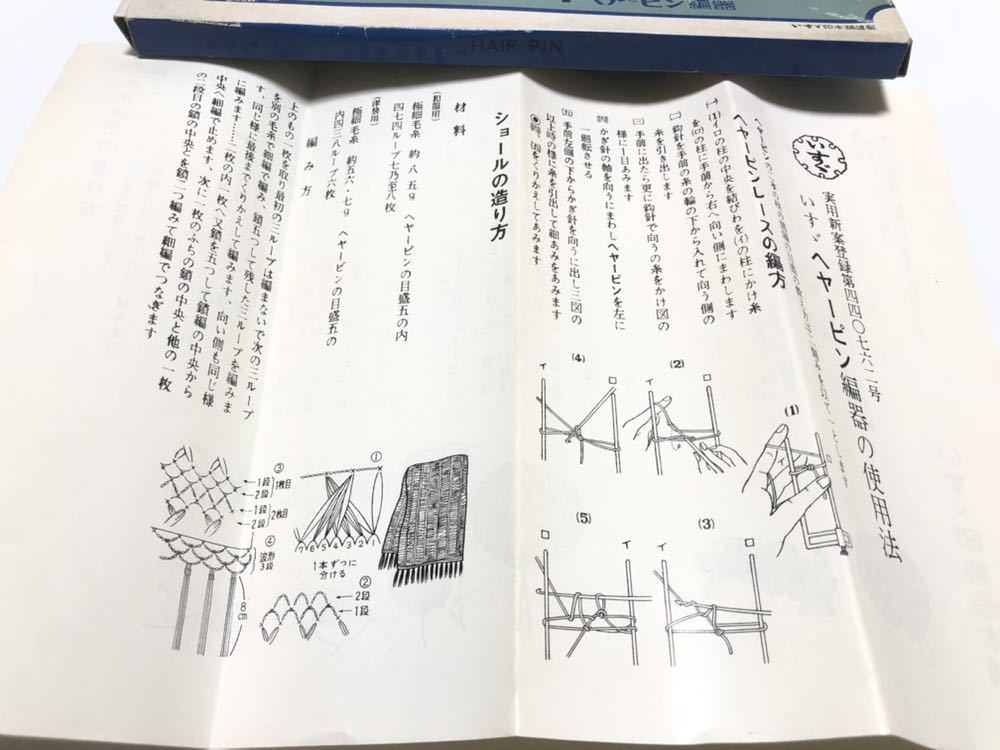 ヘヤーピン編器
HAIR PIN
いすゞ
実用新案登録第四四〇七六二号
いすゞヘヤーピン編器の使用法
ヘヤーピンレースの編方
(一)(1)イロの柱の中央を結びわを(イ)の柱にかけ糸
を(ロ)の柱に手前から右へ向い側にまわします
(二) 鈎針を手前の糸の輪の下から入れて向う側の
糸を引き出します
(三) 手前に出たら更に鈎針で向うの糸をかけ図の
様に一目あみます
(四) かぎ針の軸を向うにまわしヘヤーピンを左に
一廻転させる
(五) 手前左側の下からかぎ針を向うに出し三図の
様に糸を引出して細あみをあみます
以上
をくりかえしてあみます
ショールの造り方
材料
(和服用)
極細毛糸 約八五g ヘヤーピンの目盛五の内
四七四ループ七乃至八枚
(洋装用)
極細毛糸 約五六・七g ヘヤーピンの目盛五の
内四三八ループ六枚
編み方
上のもの一枚を取り最初の三ループは編まないで次の三ループ
を別の毛糸で細編で編み、鎖五つして残した三ループを編みま
す、同じ様に最後までくりかえして編みます、向い側も同じ様
に編みます……二枚の内一枚へ又鎖を五つして鎖編の中央から
中央へ細編で止めます、次に一枚のふちの鎖の中央と他の一枚
の二段目の鎖の中央とを鎖二つ編みて細編でつなぎます
(1)
ロ
(2)
イ
ロ
(3)
イ
ロ
(4)
イ
ロ
(5)
イ
ロ
①
7 6 5 4 3 2 1
1本ずつに
分ける
②
2段
1段
③
1段
2段
1枚目
1段
2段
2枚目
④
波形
3段
8cm